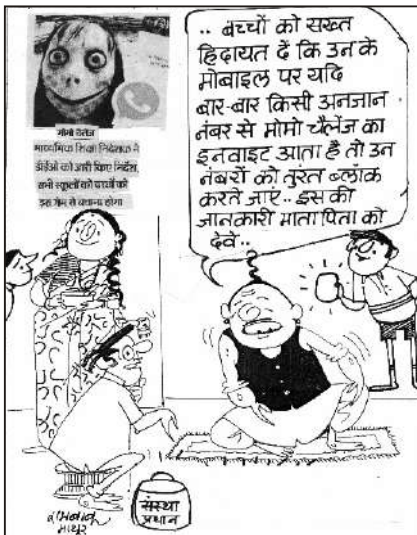 मोमो चैलेंज
माध्यमिक शिक्षा निदेशक ने
डीईओ को जारी किए निर्देश,
सभी स्कूलों को बच्चों को
इस गेम से बचाना होगा
.. बच्चों को सख्त
हिदायत दें कि उन के
मोबाइल पर यदि
बार-बार किसी अनजान
नंबर से मोमो चैलेंज का
इनवाइट आता है तो उन
नंबरों को तुरंत ब्लॉक
करते जाएं.. इस की
जानकारी माता पिता को
देवे..
संस्था
प्रधान
माथुर